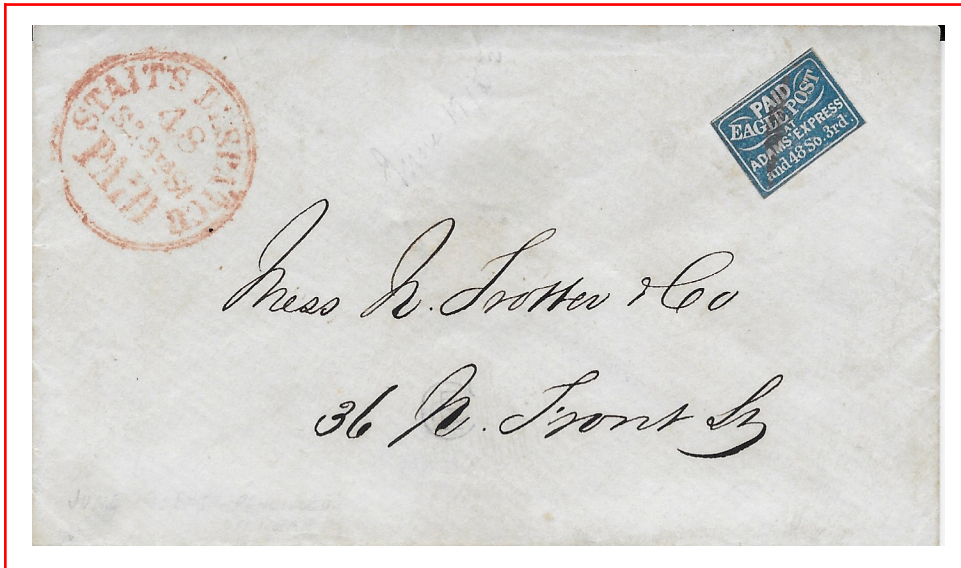 STAIT'S DESPATCH
48
So. 3rd St.
PAID
PAID
EAGLE POST
AT
ADAMS' EXPRESS
and 48 So. 3rd.
Mess N. Trotter & Co
36 N. Front St